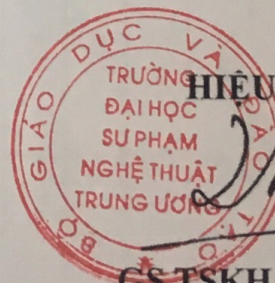 BỘ GIÁO DỤC VÀ ĐÀO TẠO
TRƯỜNG
ĐẠI HỌC
SƯ PHẠM
NGHỆ THUẬT
TRUNG ƯƠNG
HIỆU
GS.TSKH